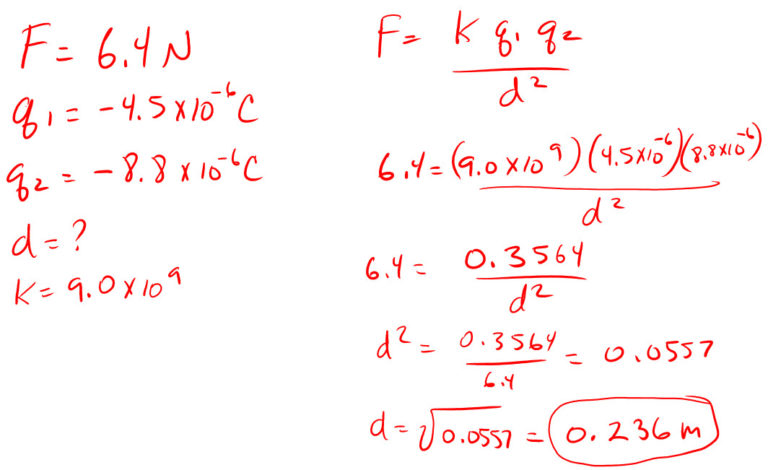 F = 6.4 N
q₁ = -4.5 x10⁻⁶ C
q₂ = -8.8 x 10⁻⁶ C
d = ?
K = 9.0 x 10⁹
F = K q₁ q₂ / d²
6.4 = (9.0 x 10⁹)(4.5x10⁻⁶)(8.8x10⁻⁶) / d²
6.4 = 0.3564 / d²
d² = 0.3564 / 6.4 = 0.0557
d = √0.0557 = 0.236 m